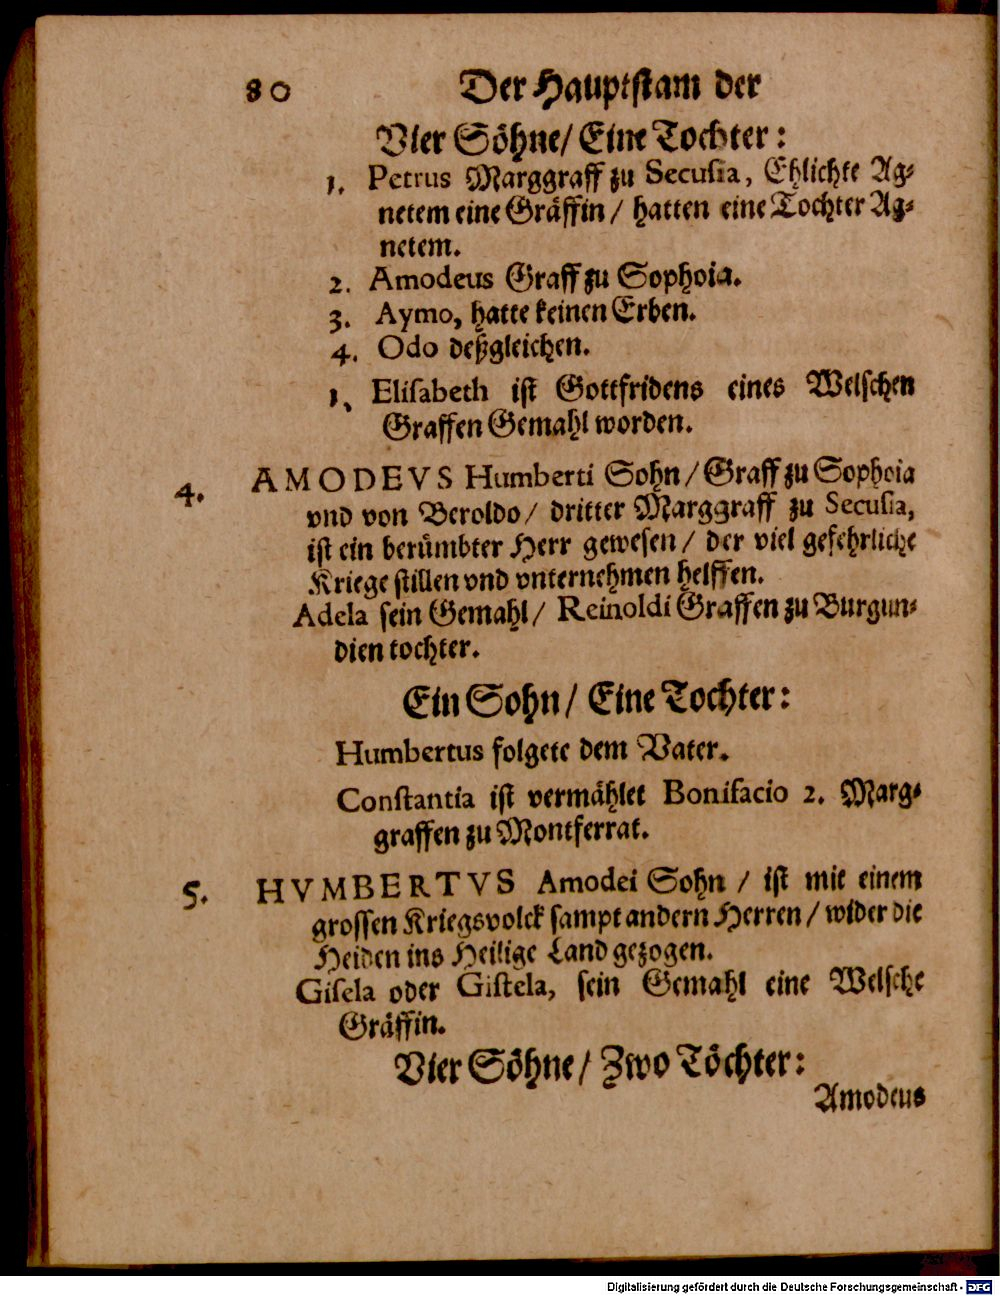 80 Der Hauptstam der
Vier Söhne/ Eine Tochter:
1. Petrus Marggraff zu Secusia, Ehlichte Ag-
netem eine Gräffin / hatten eine Tochter Ag-
netem.
2. Amodeus Graff zu Sophoia.
3. Aymo, hatte keinen Erben.
4. Odo deßgleichen.
1. Elisabeth ist Gottfridens eines Welschen
Graffen Gemahl worden.
4. AMODEVS Humberti Sohn / Graff zu Sophoia
vnd von Beroldo / dritter Marggraff zu Secusia,
ist ein berümbter Herr gewesen / der viel gefehrliche
Kriege stillen vnd vnternehmen helffen.
Adela sein Gemahl / Reinoldi Graffen zu Burgun-
dien tochter.
Ein Sohn / Eine Tochter:
Humbertus folgete dem Vater.
Constantia ist vermählet Bonifacio 2. Marg-
graffen zu Montferrat.
5. HVMBERTVS Amodei Sohn / ist mit einem
grossen Kriegsvolck sampt andern Herren / wider die
Heiden ins Heilige Land gezogen.
Gisela oder Gistela, sein Gemahl eine Welsche
Gräffin.
Vier Söhne / Zwo Töchter:
Amodeus
Digitalisierung gefördert durch die Deutsche Forschungsgemeinschaft - DFG